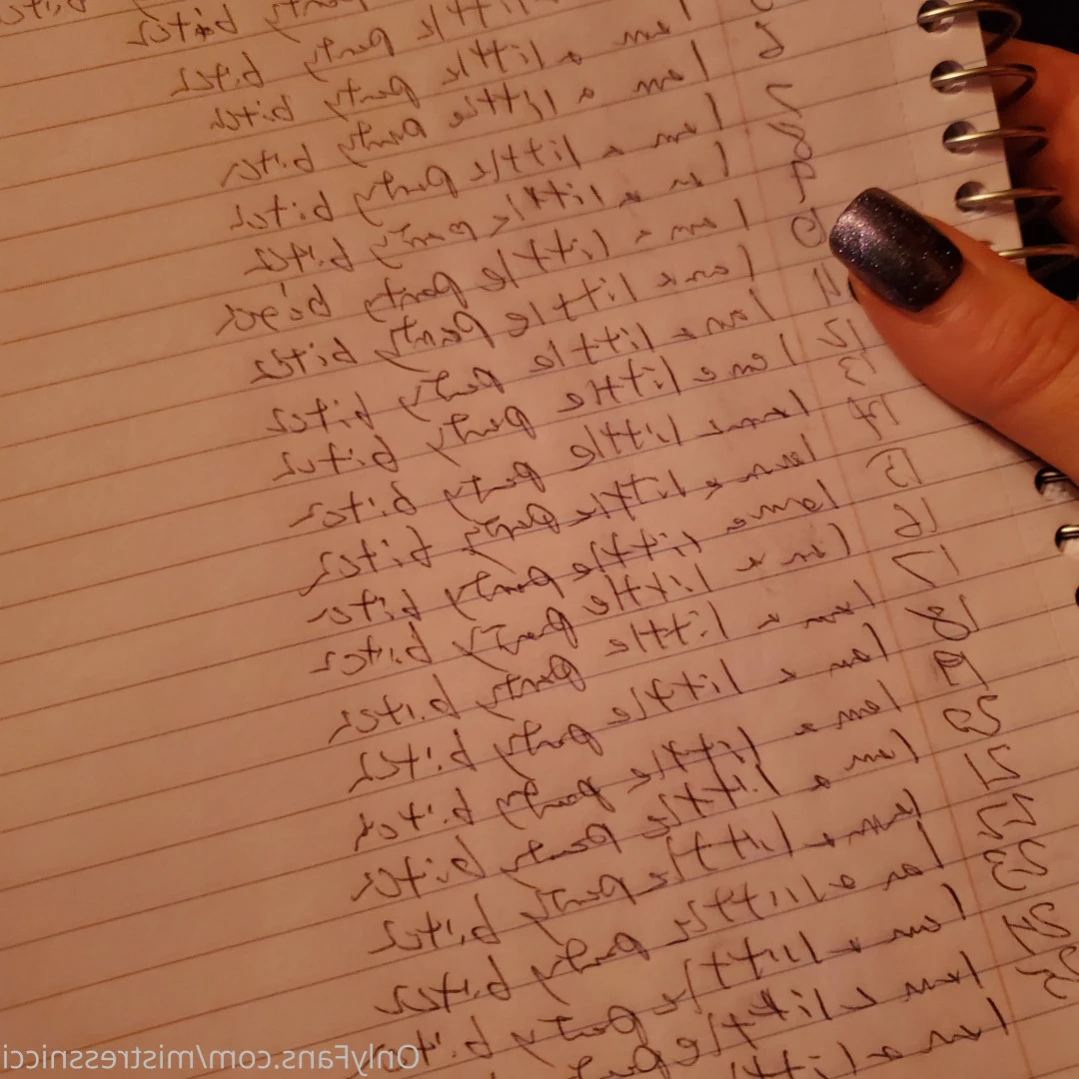 little panty bitch
5 I am a little panty bitch
6 I am a little panty bitch
7 I am a little panty bitch
8 I am a little panty bitch
9 I am a little panty bitch
10 I am a little panty bitch
11 I am a little panty bitch
12 I am a little panty bitch
13 I am a little panty bitch
14 I am a little panty bitch
15 I am a little panty bitch
16 I am a little panty bitch
17 I am a little panty bitch
18 I am a little panty bitch
19 I am a little panty bitch
20 I am a little panty bitch
21 I am a little panty bitch
22 I am a little panty bitch
23 I am a little panty bitch
24 I am a little panty bitch
25 I am a little
OnlyFans.com/mistressnicci